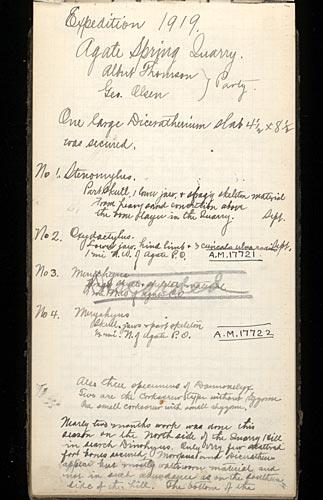 Expedition 1919.
Agate Spring Quarry.
Albert Thomson
Geo. Olsen } Party
One large Diceratherium slab 4½ x 8½
was secured.
No 1. Stenomylus.
Part skull, 1 lower jaw, & skeleton material
from heavy sand concretion above
the bone layer in the Quarry. Sept.
No 2. Oxydactylus.
Lower jaw, hind limb & 3 cervicals Sept.
1 mi N.W. of Agate P.O. A.M. 17721
No 3. Merychyus
of Agate P.O.
No 4. Merychyus
Skull, jaws & part skeleton
mi. N. of Agate P.O. A.M. 17722
Also three specimens of Daemonelix
Two are the corkscrew type without
One small corkscrew with small
Nearly two months work was done this
season on the North side of the Quarry Hill
in search Dinohyus. Only very few scattered
foot bones secured. Moropus and Diceratherium
appear but mostly material and
not in such abundance as on the southern
side of the hill. The bottom of the